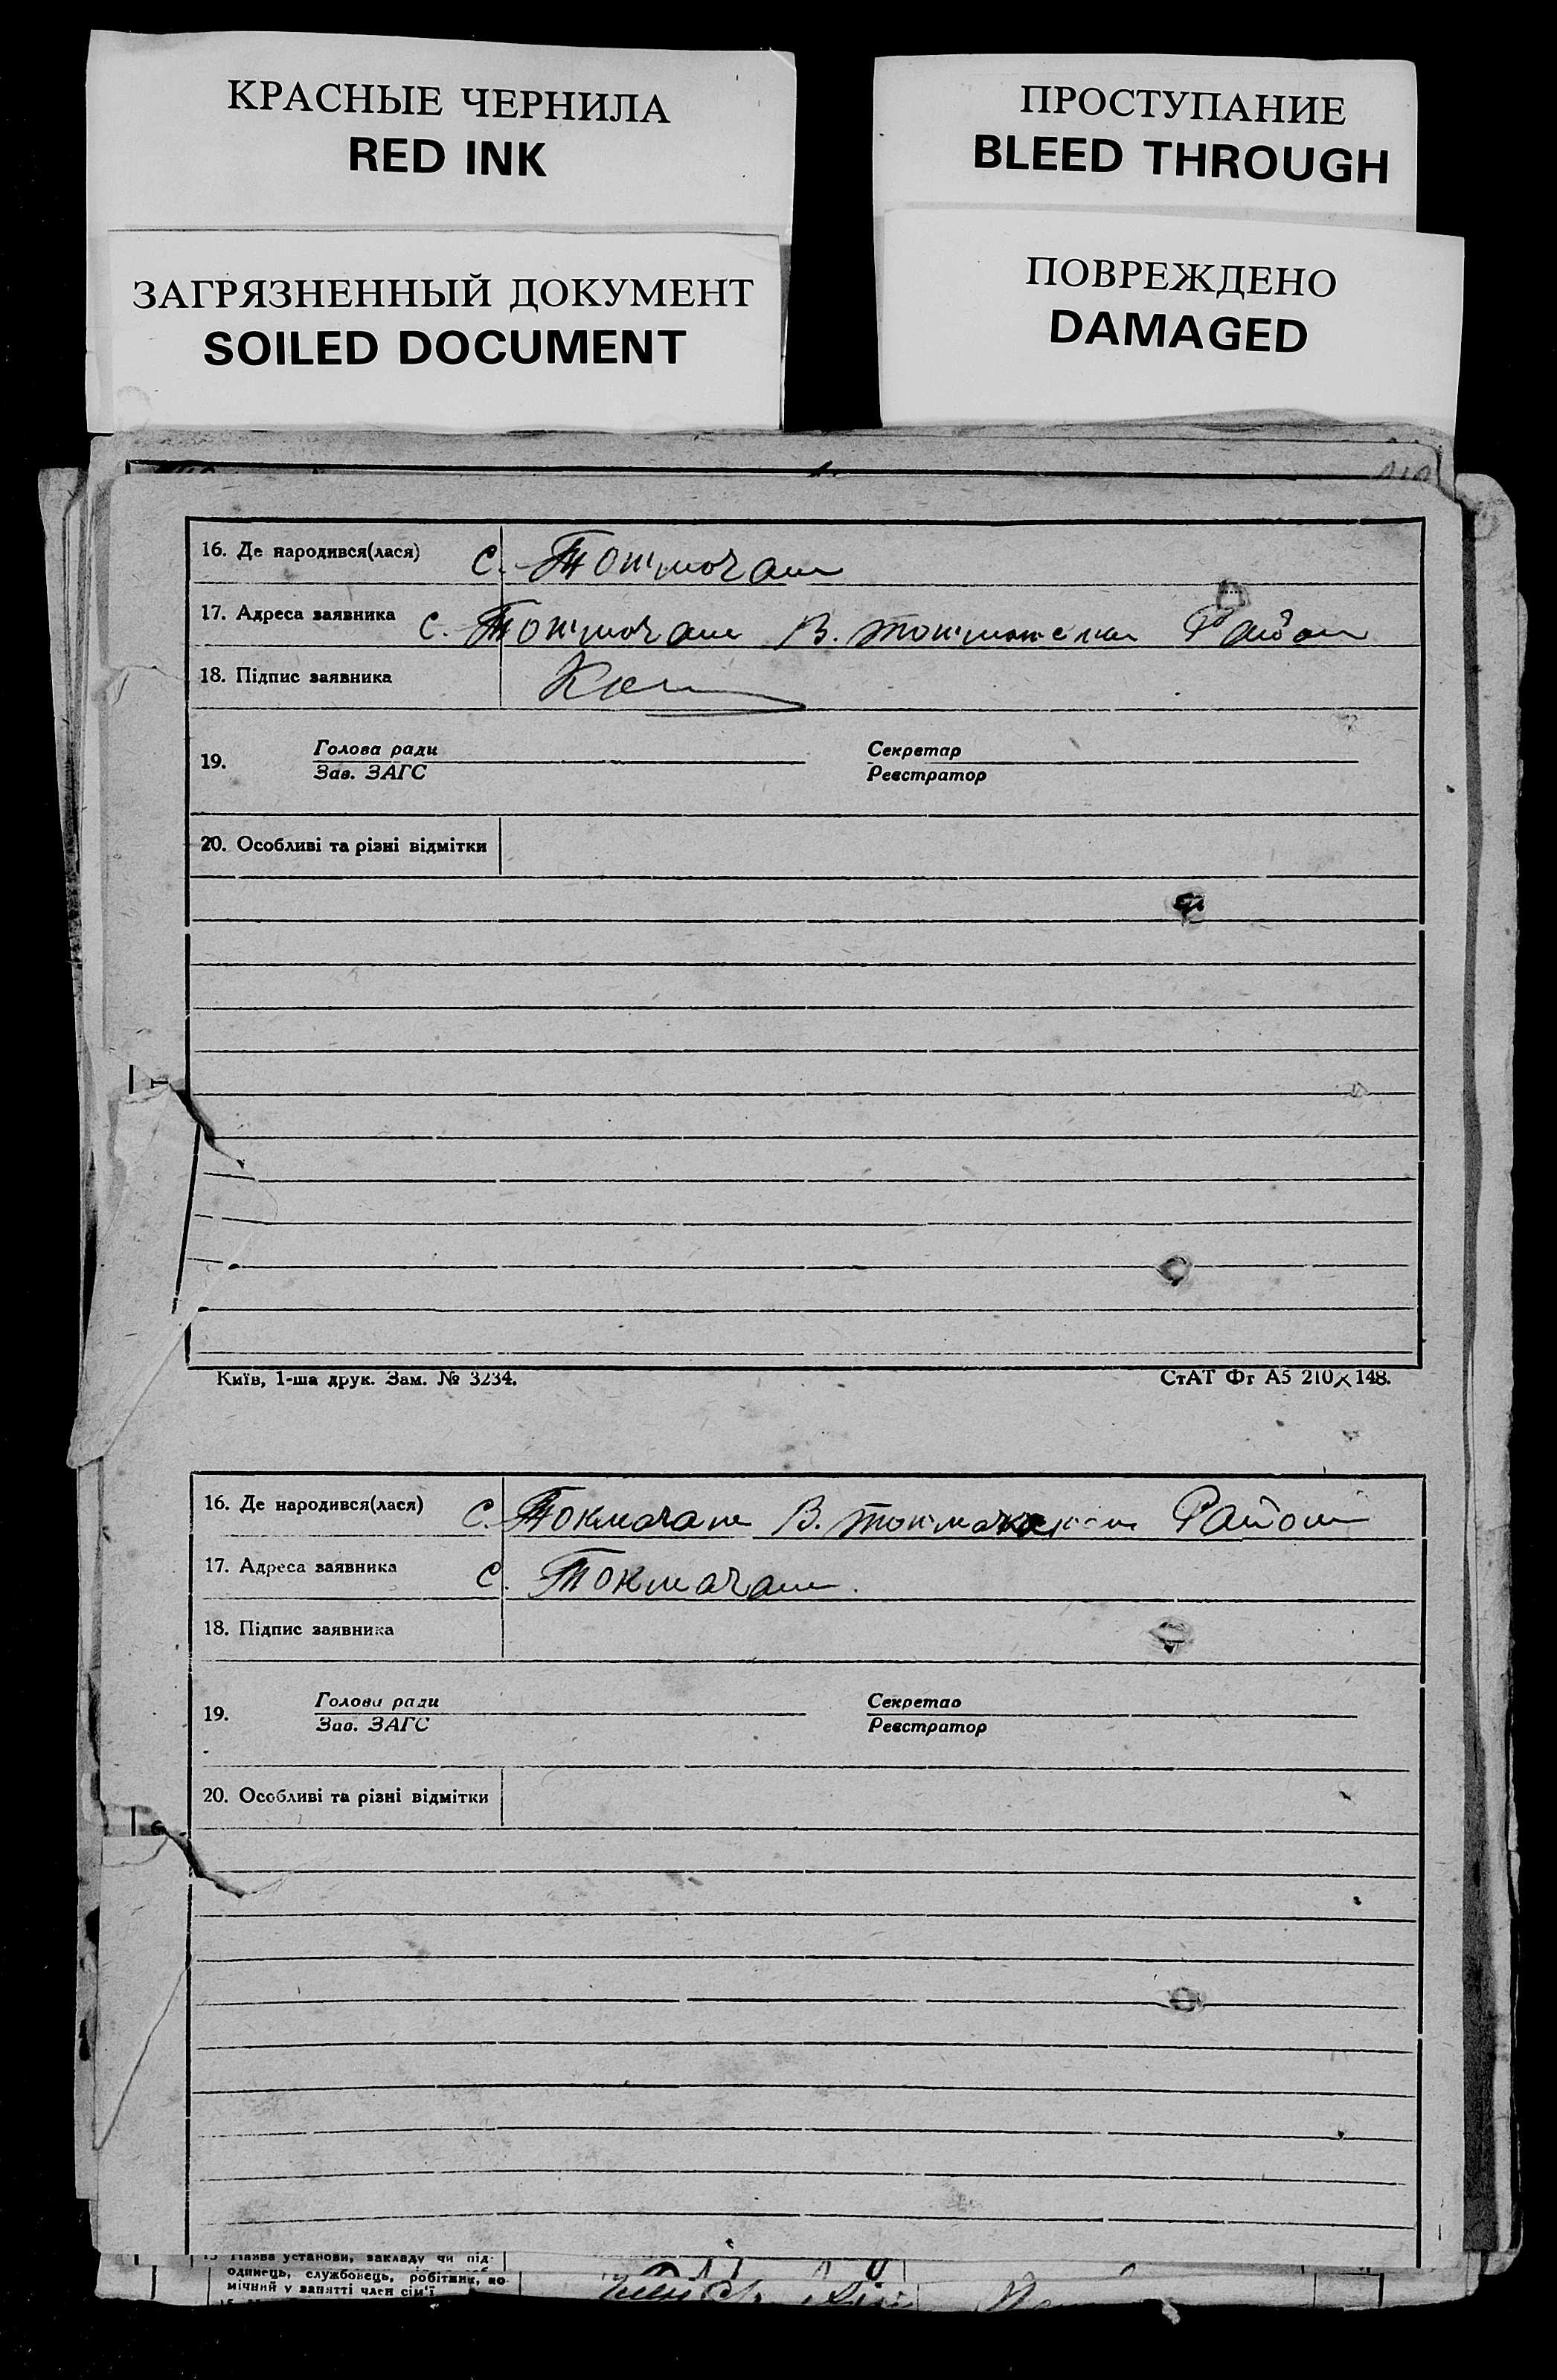 КРАСНЫЕ ЧЕРНИЛА
RED INK
ЗАГРЯЗНЕННЫЙ ДОКУМЕНТ
SOILED DOCUMENT
ПРОСТУПАНИЕ
BLEED THROUGH
ПОВРЕЖДЕНО
DAMAGED
16. Де народився(лася) с. Токмочаш
17. Адреса заявника с. Токмочаш В. Район
18. Підпис заявника
19. Голова ради Секретар
Зав. ЗАГС Реєстратор
20. Особливі та різні відмітки
Київ, 1-ша друк. Зам. № 3234. СтАТ Фг А5 210×148.
16. Де народився(лася) с. Токмачаш В. Район
17. Адреса заявника с. Токмачаш.
18. Підпис заявника
19. Голова ради Секретар
Зав. ЗАГС Реєстратор
20. Особливі та різні відмітки
Назва установи, закладу чи під-
службовець, робітник,
мічний у занятті член сім'ї